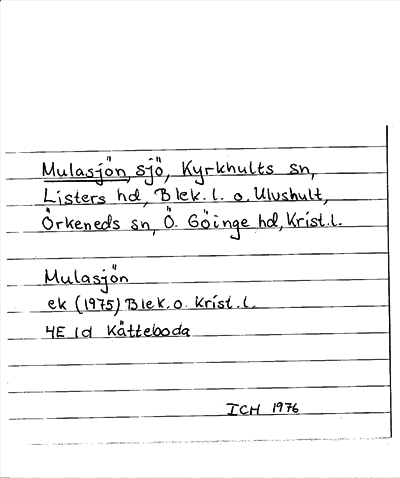 Mulasjön, sjö, Kyrkhults sn,
Listers hd, Blek. l. o. Ulvshult,
Örkeneds sn, Ö. Göinge hd, Krist. l.
Mulasjön
ek (1975) Blek. o. Krist. l.
4E 1d Kätteboda
ICH 1976